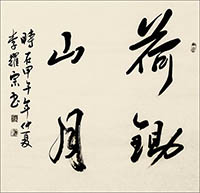 荷鋤
山月
時在甲午年仲夏
李羅宗书